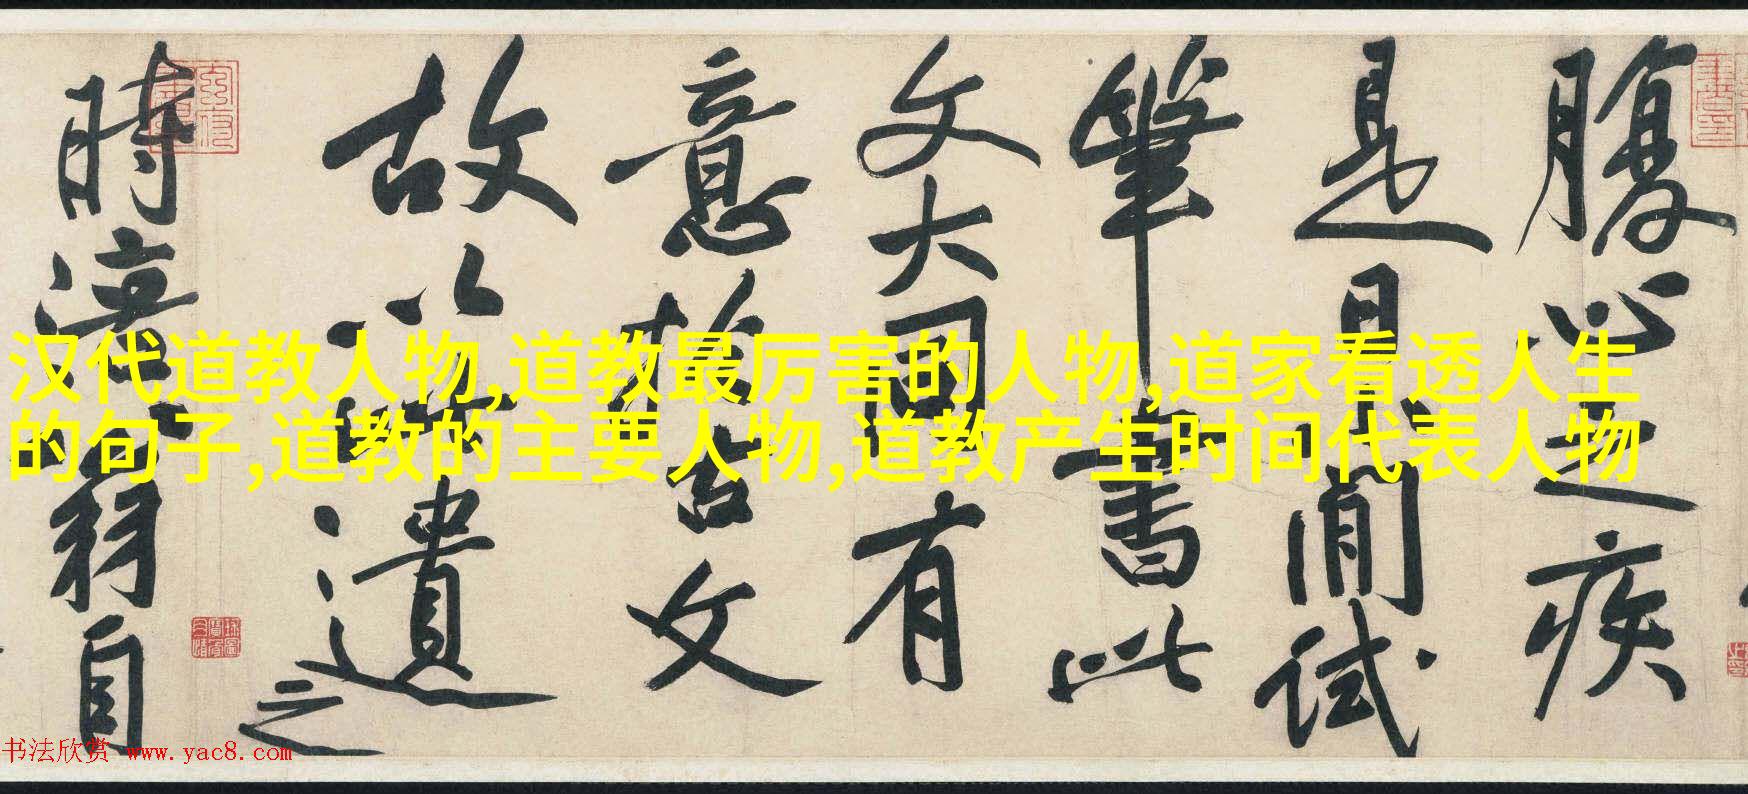 腹心之疾
是日閒試
筆書此
文大国有
意於古文
故以此遺之
時涪翁自
汉代道教人物,道教最厉害的人物,道家看透人生
的句子,道教的主要人物,道教产生时间代表人物
书法欣赏 www.yac8.com